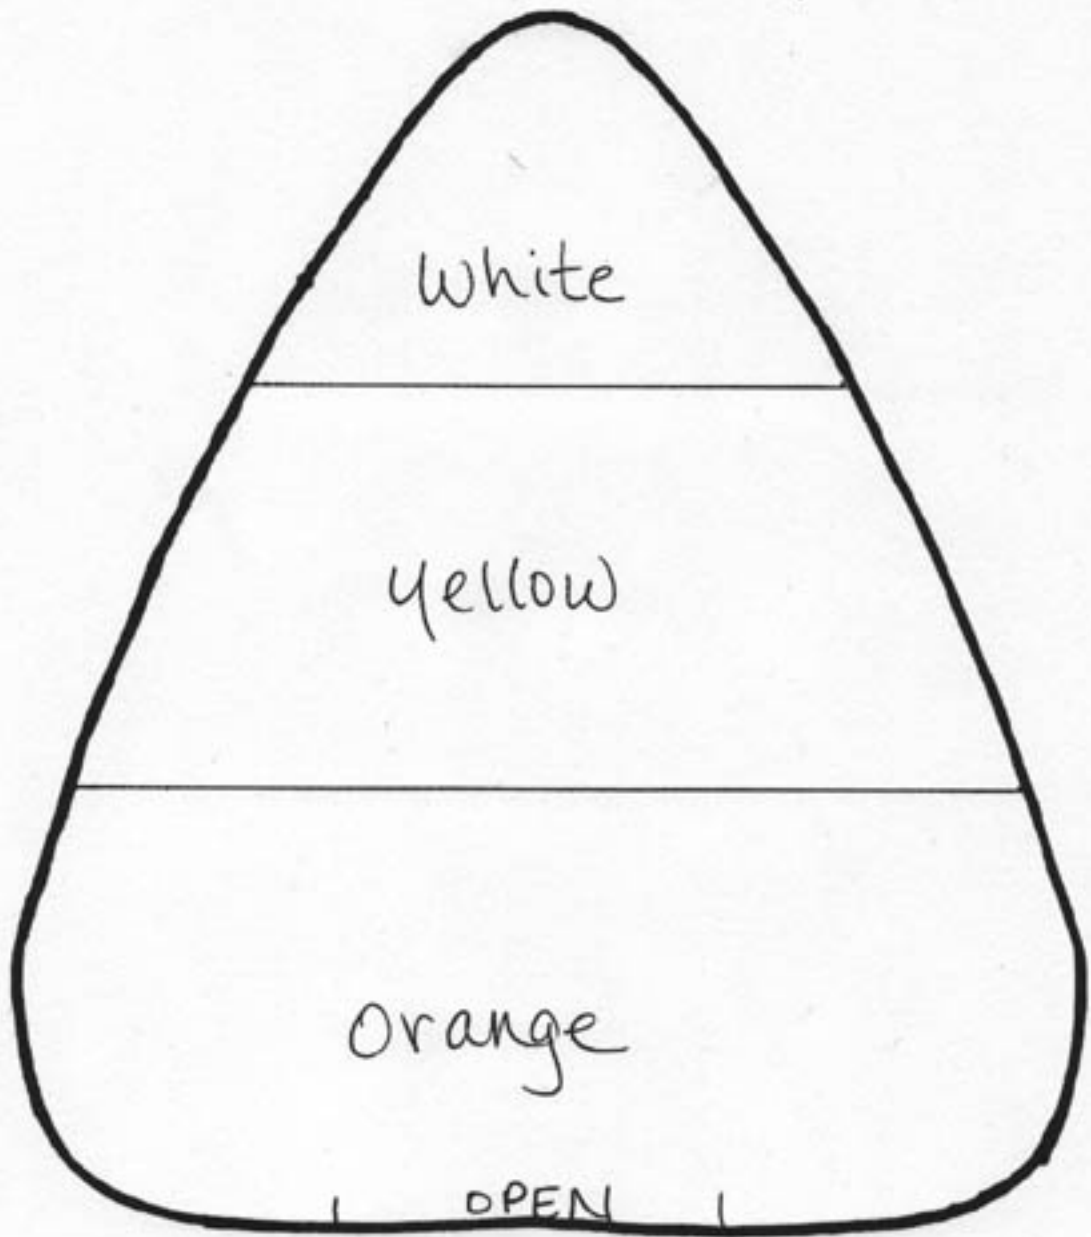 White
yellow
orange
OPEN